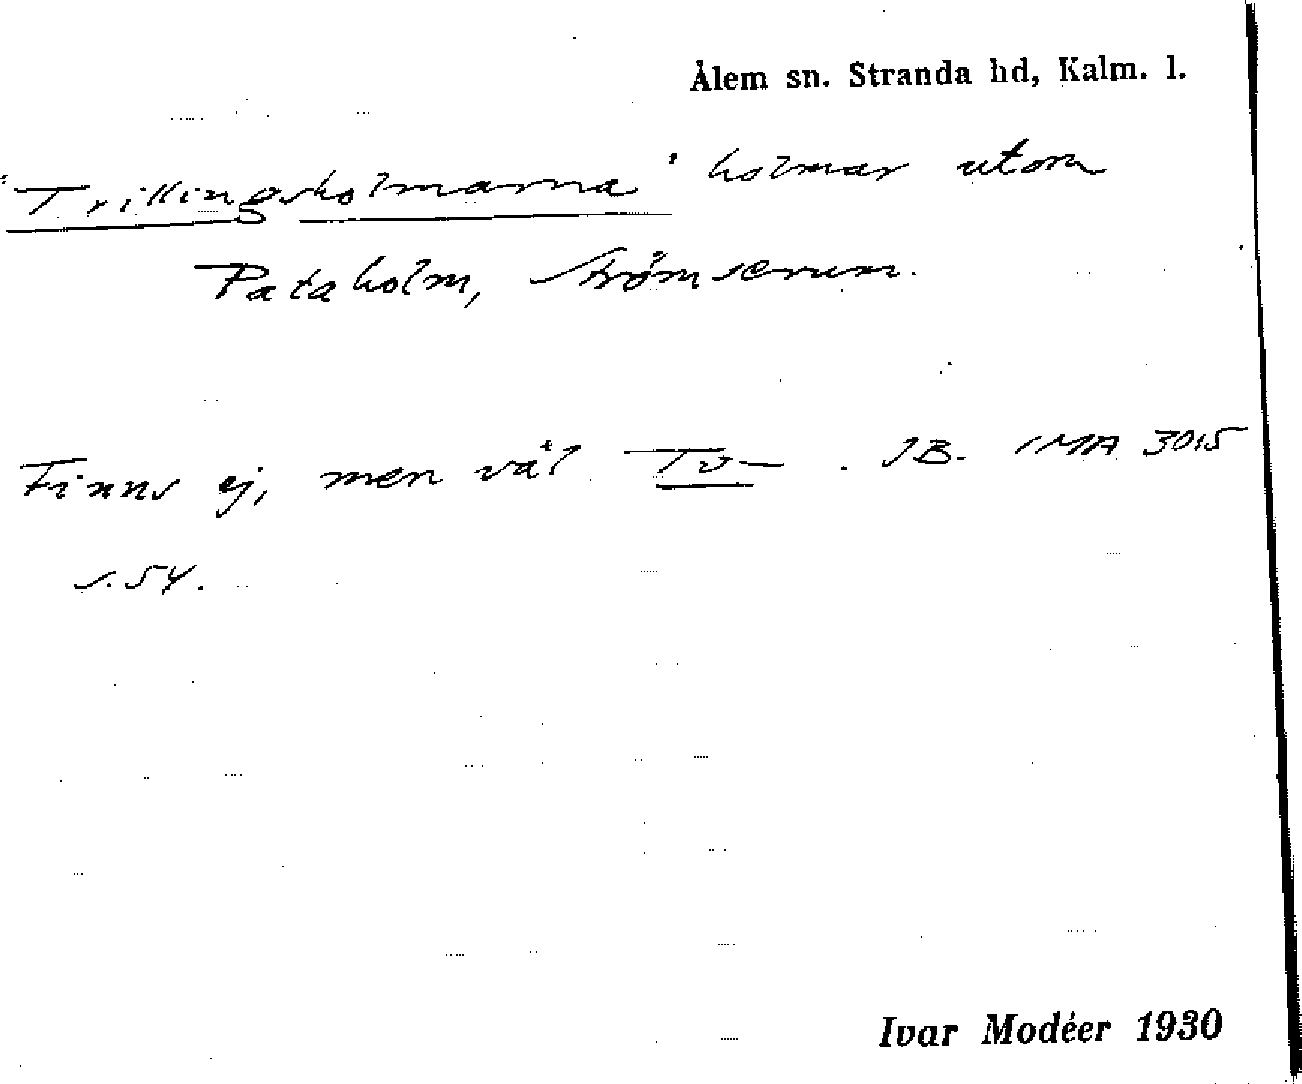 Ålem sn. Stranda hd, Kalm. l.
"Trillingsholmarna" holmar utom
Pataholm, Strömserum.
Finns ej, men väl Tv- . JB. IMA 3015
s. 54.
Ivar Modéer 1930